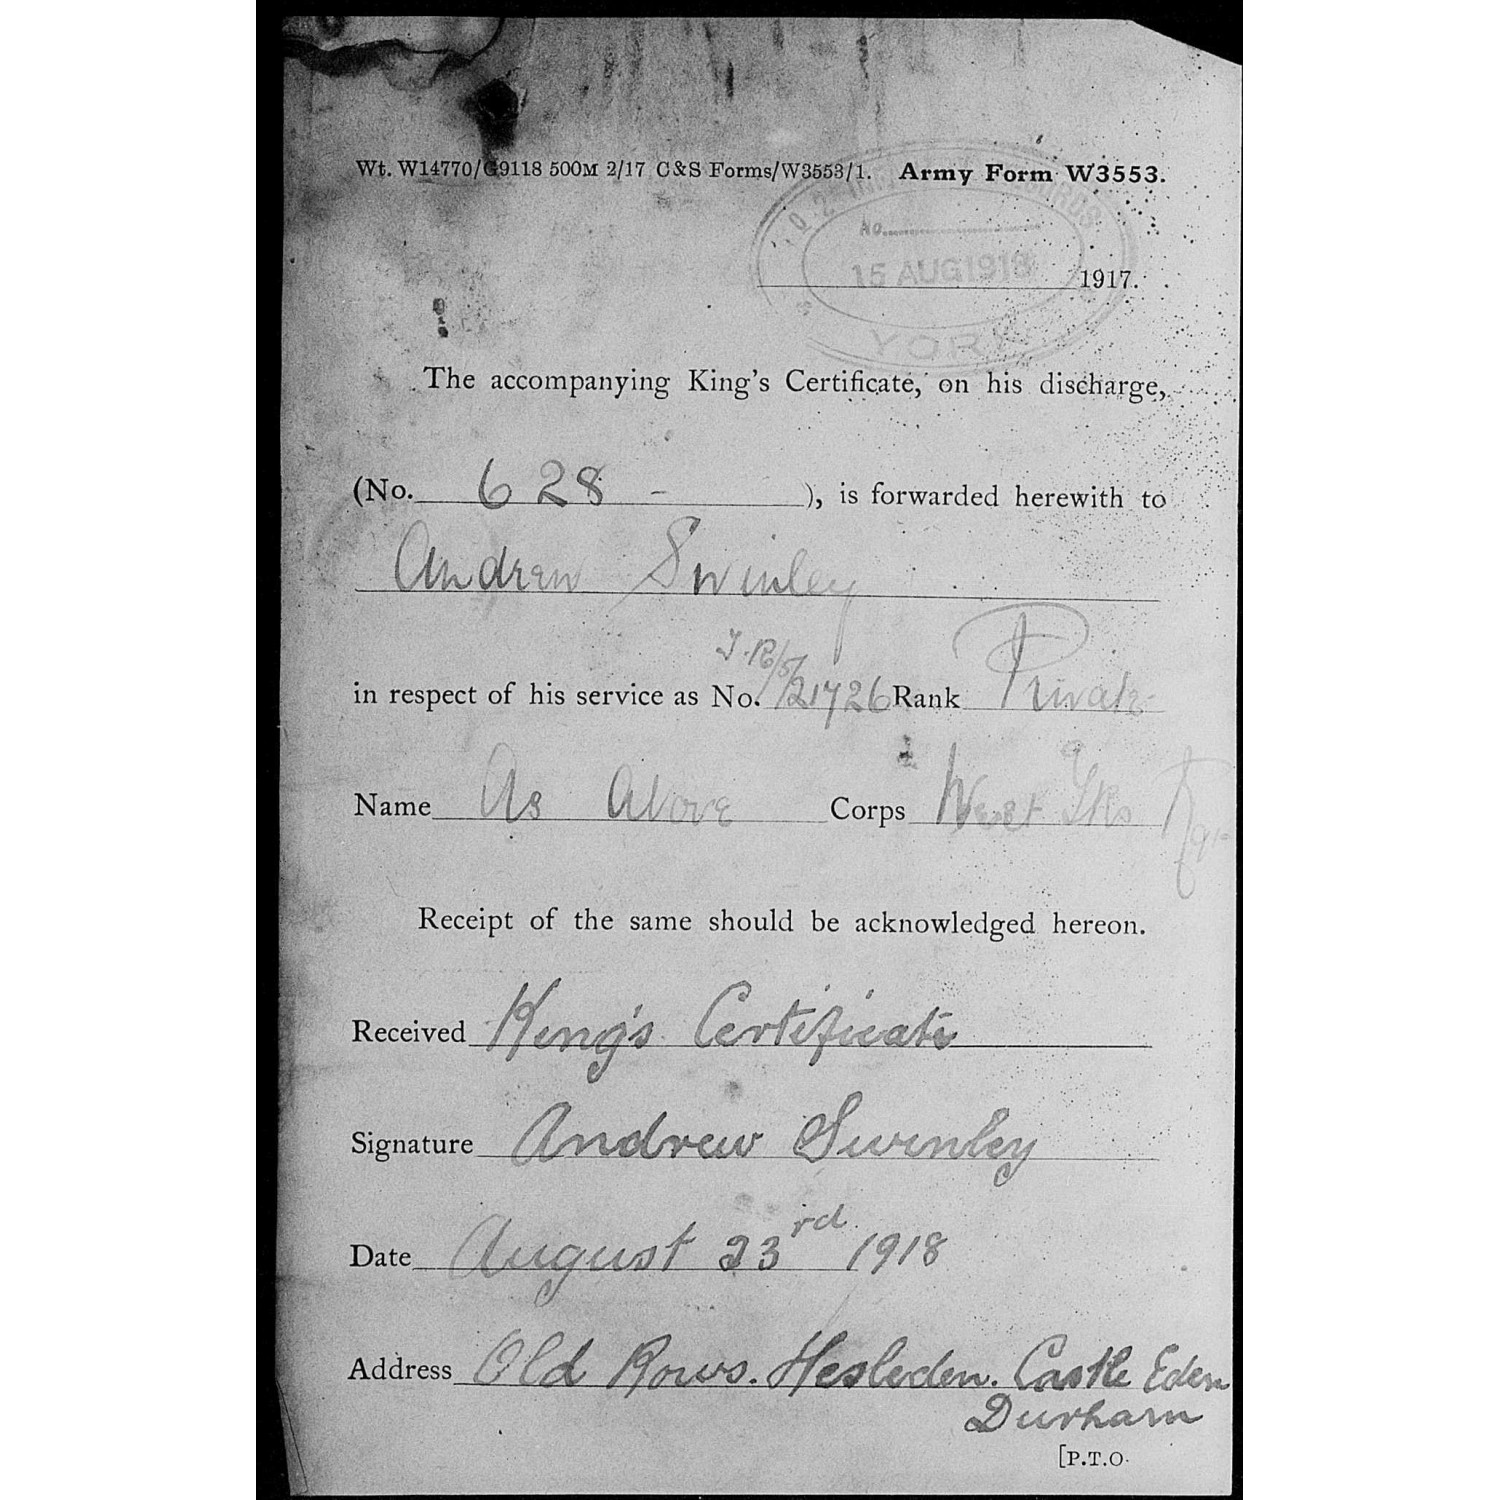 Wt. W14770/G9118 500M 2/17 C&S Forms/W3553/1. Army Form W3553.
No.
15 AUG 1918 1917.
YORK
The accompanying King's Certificate, on his discharge,
(No. 628 - ), is forwarded herewith to
Andrew Swinley
in respect of his service as No. T.R/5/21726 Rank Private
Name As Above Corps West Yks
Receipt of the same should be acknowledged hereon.
Received King's Certificate
Signature Andrew Swinley
Date August 23rd 1918
Address Old Rows. Hesleden. Castle Eden
Durham
[P.T.O.